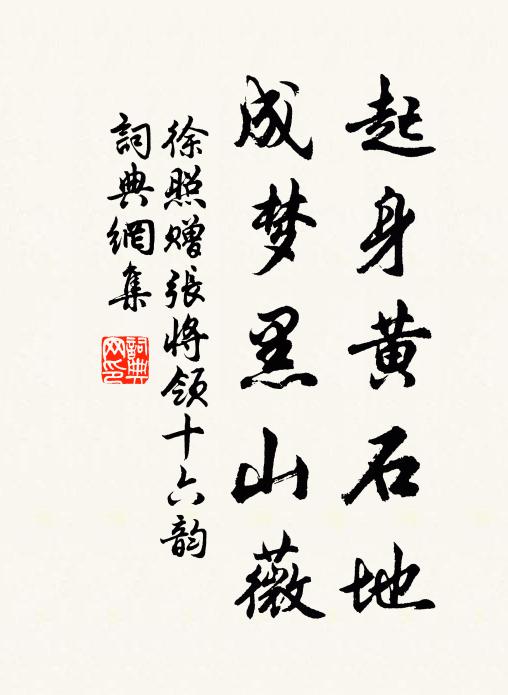 起身黄石地
成梦黑山薇
徐照赠張将領十六韵
詞典網集
詞典
网印